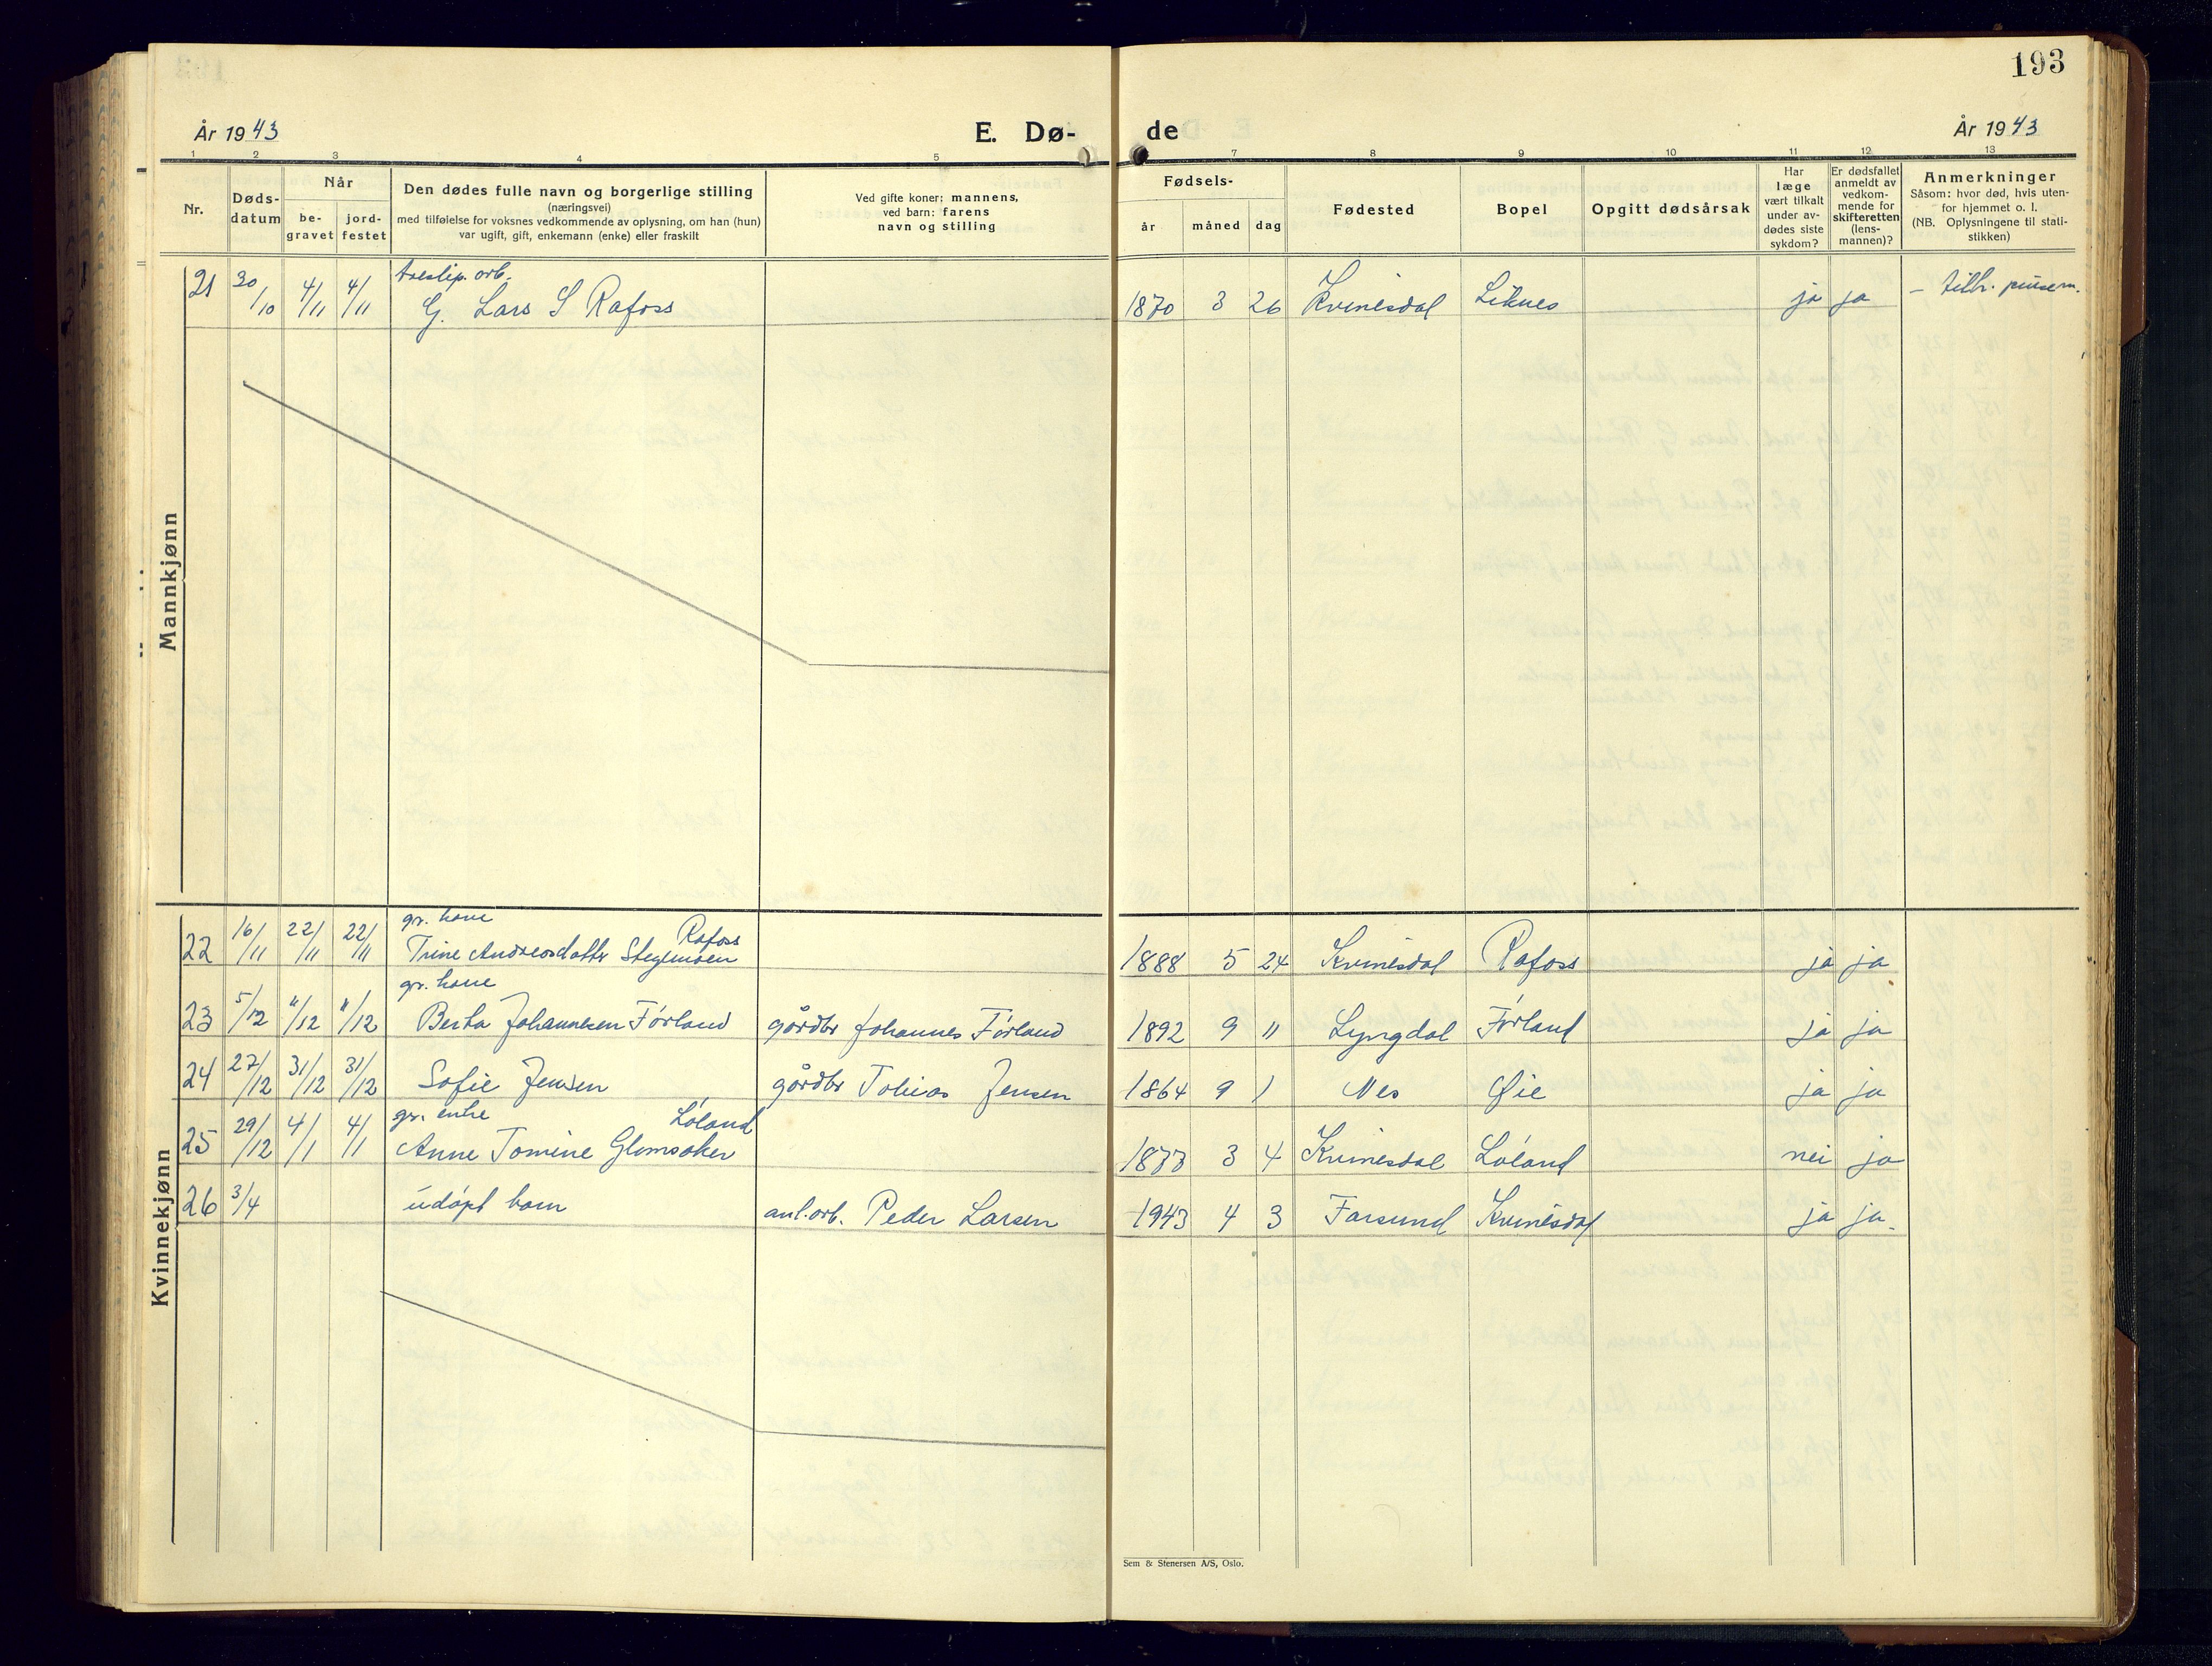 193
År 1943
E. Dø-
de
År 1943
1 2 3 4 5 7 8 9 10 11 12 13
Nr.
Døds-
datum
Når
be-
gravet
jord-
festet
Den dødes fulle navn og borgerlige stilling
(næringsvei)
med tilføielse for voksnes vedkommende av oplysning, om han (hun)
var ugift, gift, enkemann (enke) eller fraskilt
Ved gifte koner: mannens,
ved barn: farens
navn og stilling
Fødsels-
år måned dag
Fødested
Bopel
Opgitt dødsårsak
Har
læge
vært tilkalt
under av-
dødes siste
sykdom?
Er dødsfallet
anmeldt av
vedkom-
mende for
skifteretten
(lens-
mannen)?
Anmerkninger
Såsom: hvor død, hvis uten-
for hjemmet o. l.
(NB. Oplysningene til stati-
stikken)
Mannkjønn
treslip. arb.
21 30/10 4/11 4/11 G. Lars S Rafoss 1870 3 26 Kvinesdal Liknes ja ja – tilh. pinsem.
Kvinnekjønn
gr. kone
Rafoss
22 16/11 22/11 22/11 Trine Andreasdatter 1888 5 24 Kvinesdal Rafoss ja ja
gr. kone
23 5/12 11/12 11/12 Berta Johannesen Førland gårdbr Johannes Førland 1892 9 11 Lyngdal Førland ja ja
24 27/12 31/12 31/12 Sofie Jensen gårdbr Tobias Jensen 1864 9 1 Nes Øie ja ja
gr. enke
Løland
25 29/12 4/1 4/1 Anne Tomine Glomsaker 1877 3 4 Kvinesdal Løland nei ja
26 3/4 udøpt barn anl.arb. Peder Larsen 1943 4 3 Farsund Kvinesdal ja ja.
Sem & Stenersen A/S, Oslo.